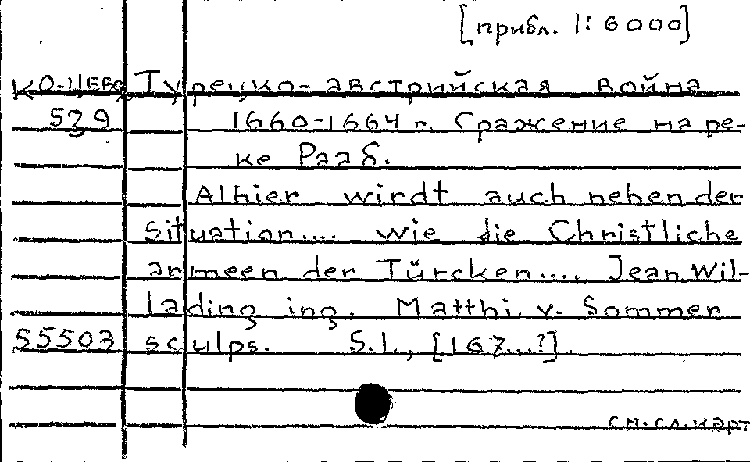 [прибл. 1:6000]
КО-ЦЕВР Турецко-австрийская война
529 1660-1664 г. Сражение на ре-
ке Рааб.
Alhier wirdt auch neben der
situation.... wie die Christliche
armeen der Türcken.... Jean Wil-
lading ing. Matthi. v. Sommer
55503 sculps. S.l., [167...?].
см.сл.карт